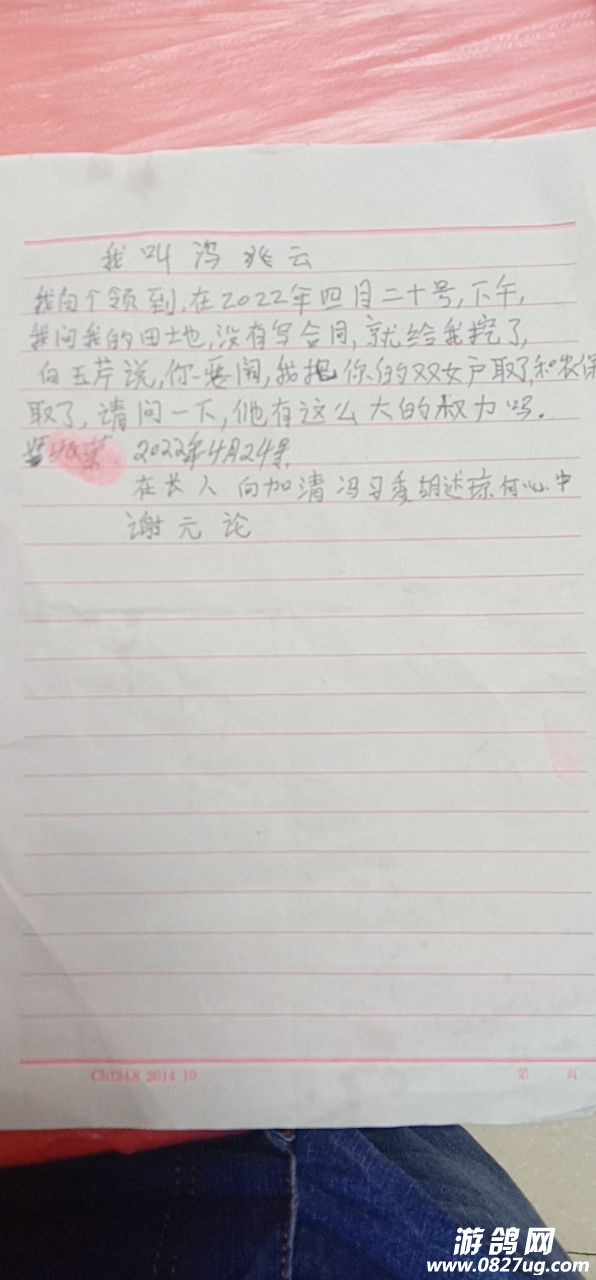 我叫冯兆云
我向个领到,在2022年四月二十号,下午,
我问我的田土地,没有写合同,就给我挖了,
向玉芹说,你恶闹,我把你的双女户取了和农保
取了,请问一下,他有这么大的权力吗.
2022年4月24号
在长人 向加清 冯习 胡述琼 何心中
谢元论
Ch124.8 2014 10
第 页
游鸽网
www.0827ug.com